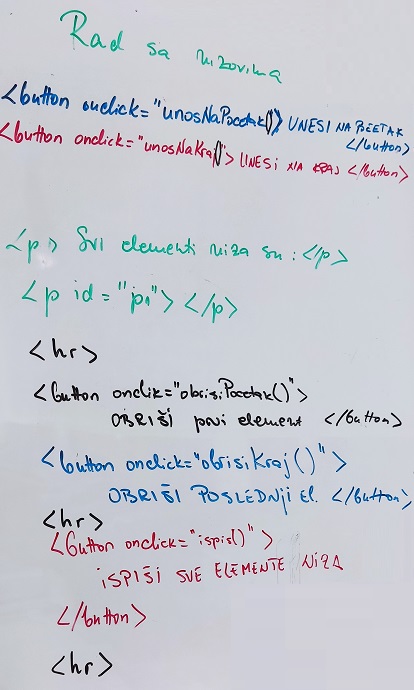 Rad sa nizovima
<button onclick="unosNaPocetak()> UNESI NA POČETAK
</button>
<button onclick="unosNaKraj()"> UNESI NA KRAJ </button>
<p> Svi elementi niza su: </p>
<p id="p1"> </p>
<hr>
<button onclik="obrisiPocetak()">
OBRIŠI prvi element </button>
<button onclick="obrisiKraj()">
OBRIŠI POSLEDNJI El. </button>
<hr>
<button onclick="ispis()">
ISPIŠI SVE ELEMENTE NIZA
</button>
<hr>